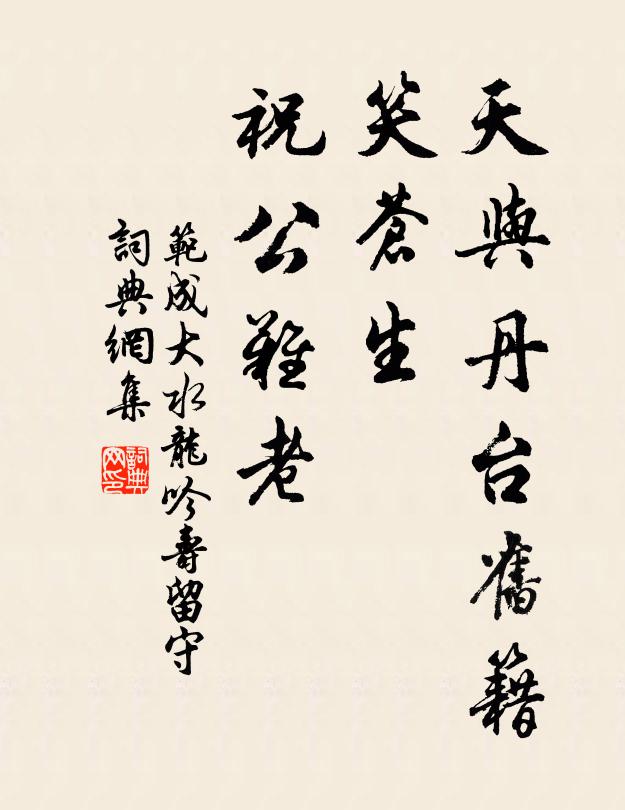 天與丹台舊籍
笑蒼生
祝公難老
範成大水龍吟壽留守
詞典網集
詞典網印